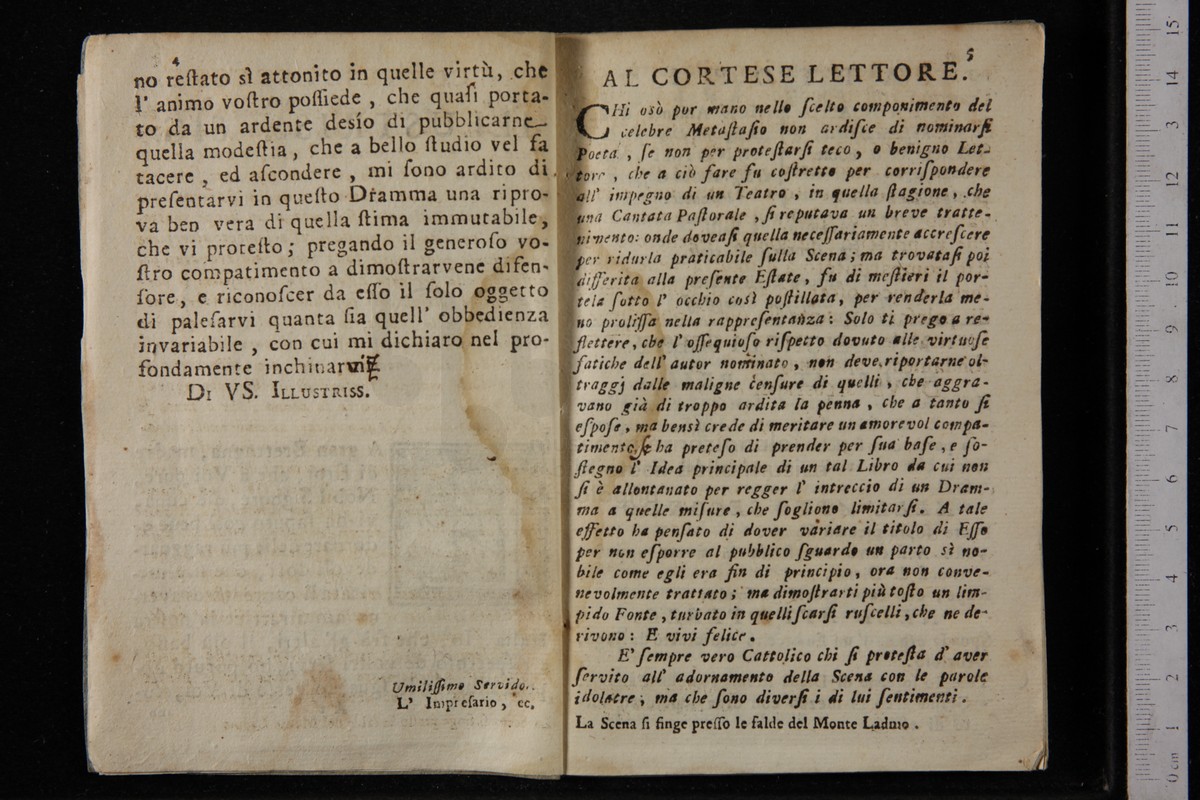 4
no reſtato sì attonito in quelle virtù, che
l' animo voſtro poſſiede, che quaſi porta-
to da un ardente desío di pubblicarne
quella modeſtia, che a bello ſtudio vel fa
tacere, ed aſcondere, mi ſono ardito di
preſentarvi in queſto Dramma una ripro-
va ben vera di quella ſtima immutabile,
che vi proteſto; pregando il generoſo vo-
ſtro compatimento a dimoſtrarvene difen-
ſore, e riconoſcer da eſſo il ſolo oggetto
di paleſarvi quanta ſia quell' obbedienza
invariabile, con cui mi dichiaro nel pro-
fondamente inchinarvi
Di VS. Illustriss.
Umiliſſimo Servido.
L' Impreſario, ec.
5
AL CORTESE LETTORE.
CHi osò por mano nello ſcelto componimento del
celebre Metaſtaſio non ardiſce di nominarſi
Poeta, ſe non per proteſtarſi teco, o benigno Let-
tore, che a ciò fare fu coſtretto per corriſpondere
all' impegno di un Teatro, in quella ſtagione, che
una Cantata Paſtorale, ſi reputava un breve tratte-
nimento: onde doveaſi quella neceſſariamente accreſcere
per ridurla praticabile ſulla Scena; ma trovataſi poi
differita alla preſente Eſtate, fu di meſtieri il por-
tela ſotto l' occhio così poſtillata, per renderla me-
no proliſſa nella rappreſentanza: Solo ti prego a re-
flettere, che l' oſſequioſo riſpetto dovuto alle virtuoſe
fatiche dell' autor nominato, non deve riportarne ol-
traggj dalle maligne cenſure di quelli, che aggra-
vano già di troppo ardita la penna, che a tanto ſi
eſpoſe, ma bensì crede di meritare un amorevol compa-
timento, ſe ha preteſo di prender per ſua baſe, e ſo-
ſtegno l' Idea principale di un tal Libro da cui non
ſi è allontanato per regger l' intreccio di un Dram-
ma a quelle miſure, che ſogliono limitarſi. A tale
effetto ha penſato di dover variare il titolo di Eſſo
per non eſporre al pubblico ſguardo un parto sì no-
bile come egli era fin di principio, ora non conve-
nevolmente trattato; ma dimoſtrarti più toſto un lim-
pido Fonte, turbato in quelli ſcarſi ruſcelli, che ne de-
rivono: E vivi felice.
E' ſempre vero Cattolico chi ſi proteſta d' aver
ſervito all' adornamento della Scena con le parole
idolatre, ma che ſono diverſi i di lui ſentimenti.
La Scena ſi finge preſſo le falde del Monte Ladmo.